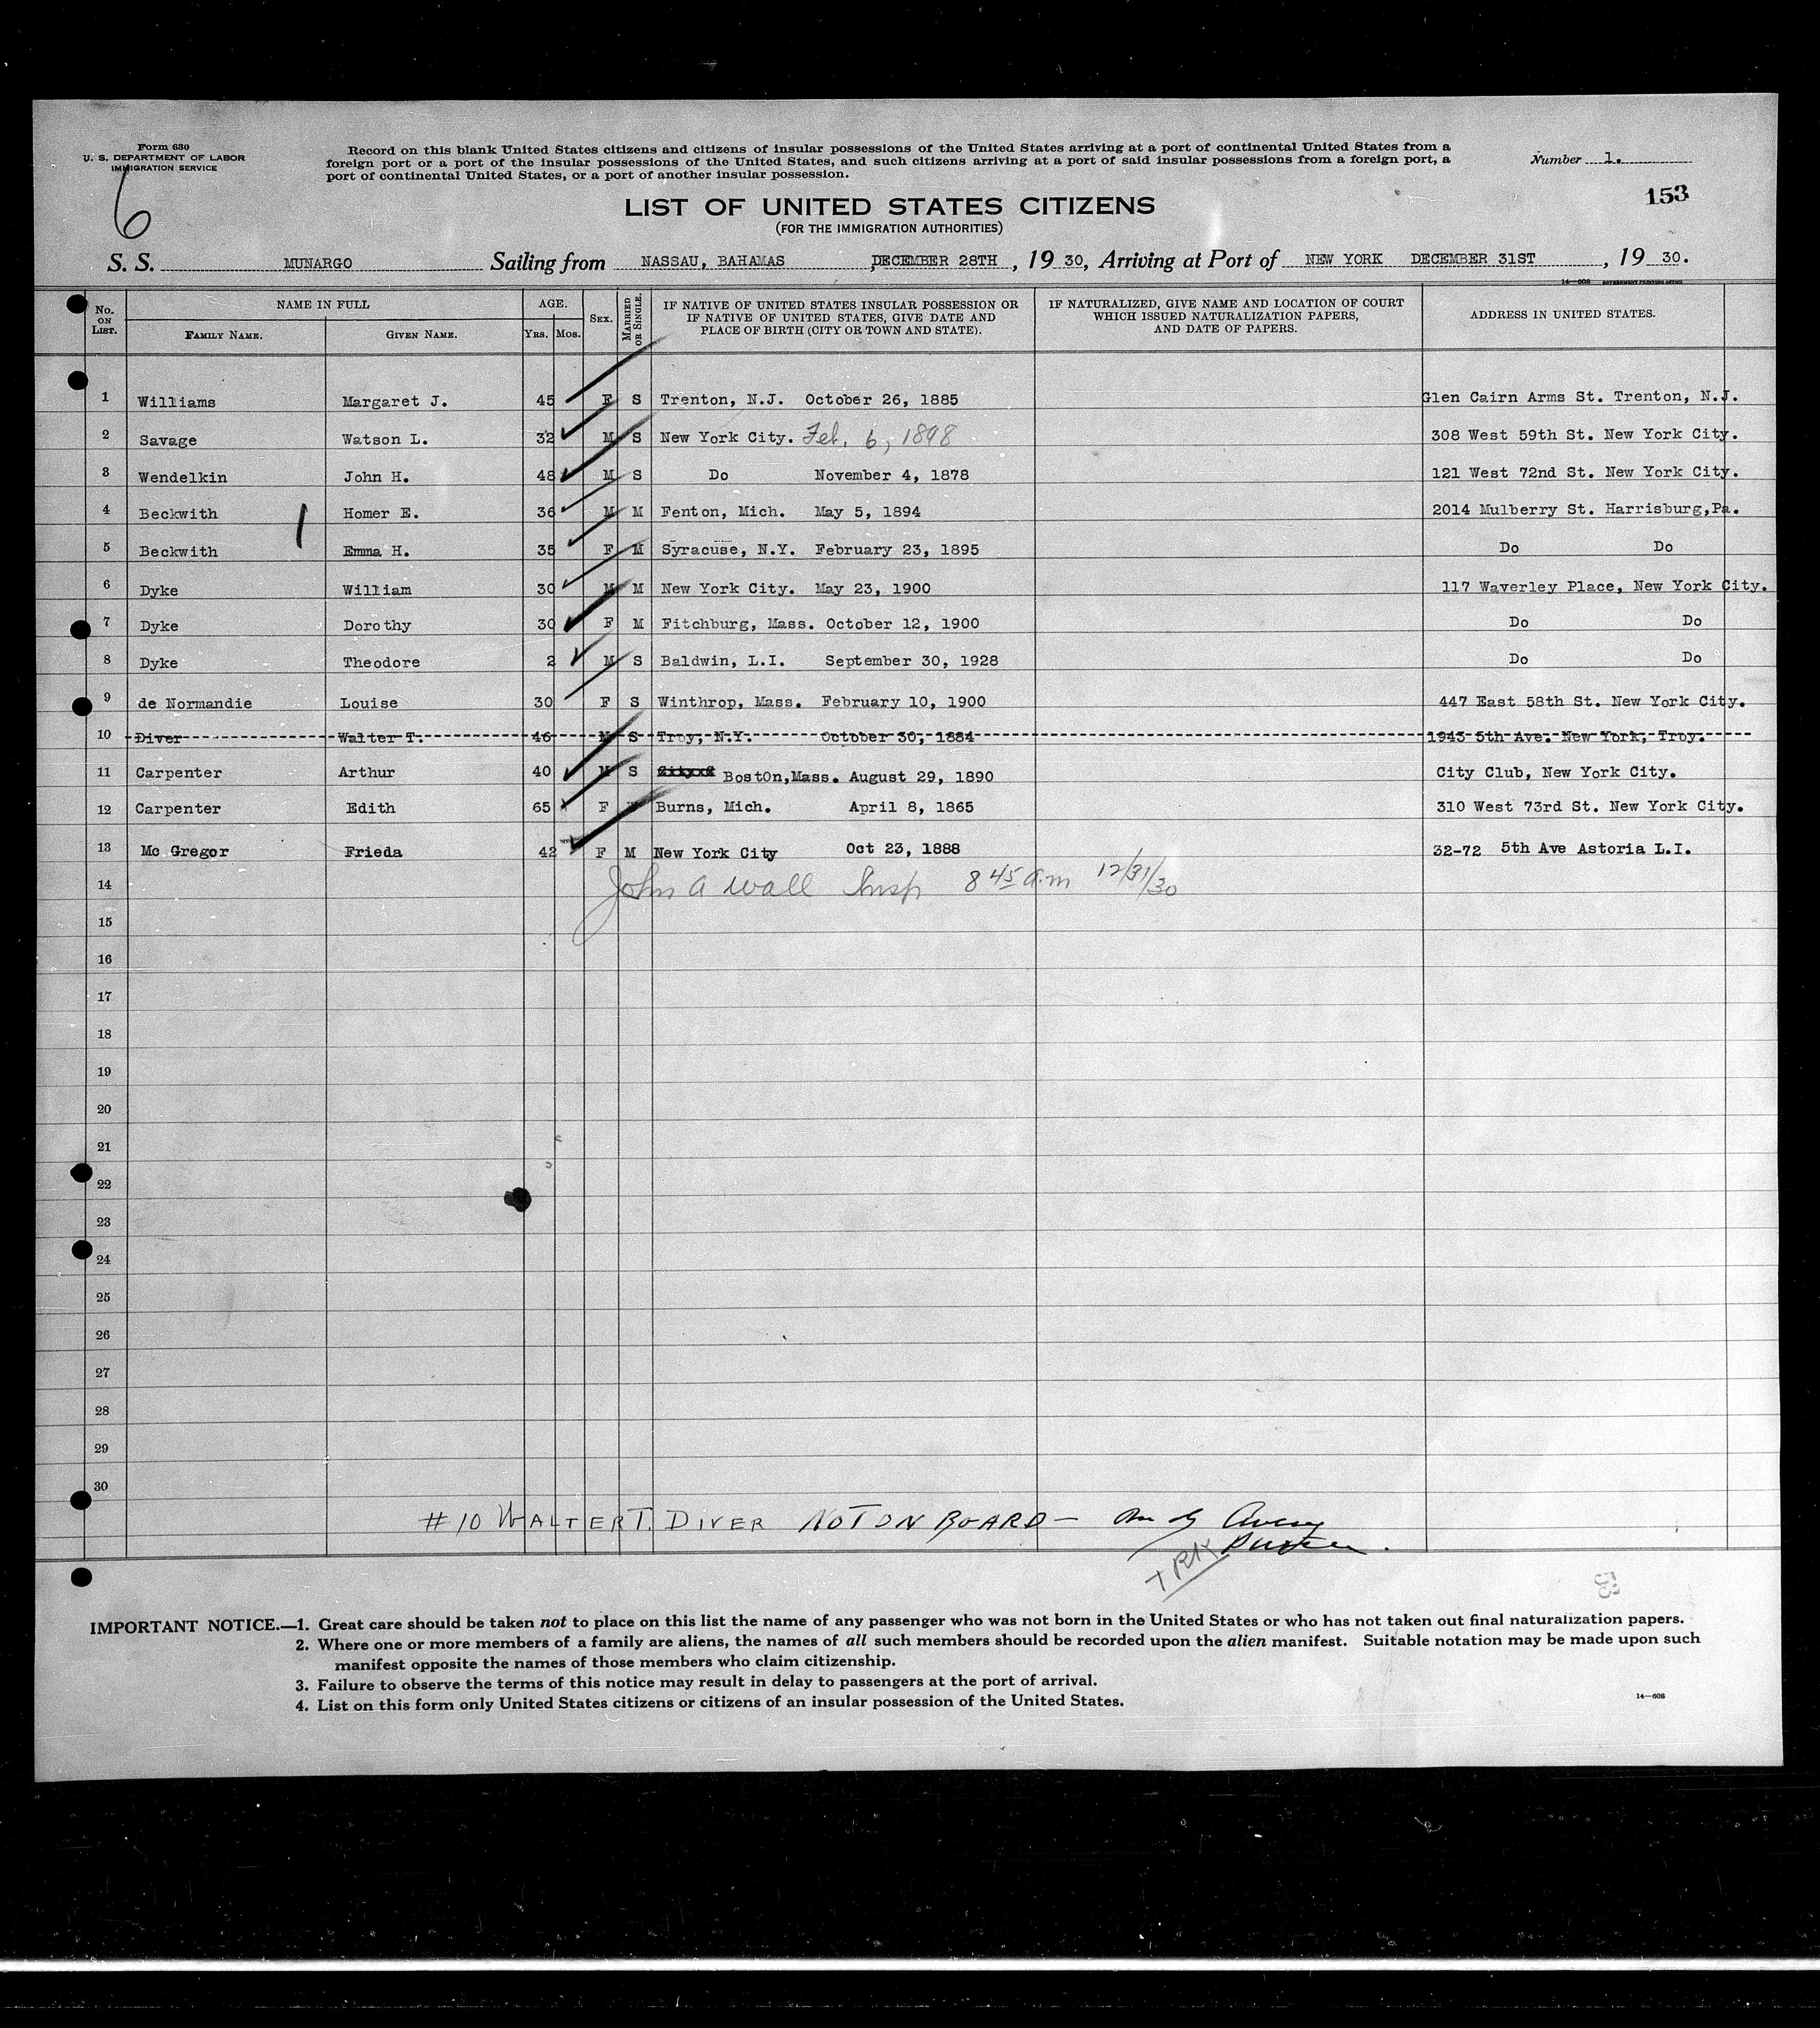 Form 630
U. S. DEPARTMENT OF LABOR
IMMIGRATION SERVICE
6
Record on this blank United States citizens and citizens of insular possessions of the United States arriving at a port of continental United States from a
foreign port or a port of the insular possessions of the United States, and such citizens arriving at a port of said insular possessions from a foreign port, a
port of continental United States, or a port of another insular possession.
Number 1.
153
LIST OF UNITED STATES CITIZENS
(FOR THE IMMIGRATION AUTHORITIES)
S. S. MUNARGO Sailing from NASSAU, BAHAMAS DECEMBER 28TH, 1930, Arriving at Port of NEW YORK DECEMBER 31ST, 1930.
14—608 GOVERNMENT PRINTING OFFICE
No. ON LIST.
NAME IN FULL
FAMILY NAME. GIVEN NAME.
AGE.
YRS. MOS.
SEX.
MARRIED OR SINGLE.
IF NATIVE OF UNITED STATES INSULAR POSSESSION OR
IF NATIVE OF UNITED STATES, GIVE DATE AND
PLACE OF BIRTH (CITY OR TOWN AND STATE).
IF NATURALIZED, GIVE NAME AND LOCATION OF COURT
WHICH ISSUED NATURALIZATION PAPERS,
AND DATE OF PAPERS.
ADDRESS IN UNITED STATES.
1 Williams Margaret J. 45 F S Trenton, N.J. October 26, 1885 Glen Cairn Arms St. Trenton, N.J.
2 Savage Watson L. 32 M S New York City. Feb. 6, 1898 308 West 59th St. New York City.
3 Wendelkin John H. 48 M S Do November 4, 1878 121 West 72nd St. New York City.
4 Beckwith Homer E. 36 M M Fenton, Mich. May 5, 1894 2014 Mulberry St. Harrisburg,Pa.
5 Beckwith Emma H. 35 F M Syracuse, N.Y. February 23, 1895 Do Do
6 Dyke William 30 M M New York City. May 23, 1900 117 Waverley Place, New York City.
7 Dyke Dorothy 30 F M Fitchburg, Mass. October 12, 1900 Do Do
8 Dyke Theodore 2 M S Baldwin, L.I. September 30, 1928 Do Do
9 de Normandie Louise 30 F S Winthrop, Mass. February 10, 1900 447 East 58th St. New York City.
10 Diver Walter T. 46 M S Troy, N.Y. October 30, 1884 1943 5th Ave. New York, Troy.
11 Carpenter Arthur 40 M S Boston,Mass. August 29, 1890 City Club, New York City.
12 Carpenter Edith 65 F Burns, Mich. April 8, 1865 310 West 73rd St. New York City.
13 Mc Gregor Frieda 42 F M New York City Oct 23, 1888 32-72 5th Ave Astoria L.I.
14 John A Wall Insp 8 45 a.m 12/31/30
15
16
17
18
19
20
21
22
23
24
25
26
27
28
29
30
#10 WALTER T. DIVER NOT ON BOARD — Avery
Purser.
IMPORTANT NOTICE.—1. Great care should be taken not to place on this list the name of any passenger who was not born in the United States or who has not taken out final naturalization papers.
2. Where one or more members of a family are aliens, the names of all such members should be recorded upon the alien manifest. Suitable notation may be made upon such
manifest opposite the names of those members who claim citizenship.
3. Failure to observe the terms of this notice may result in delay to passengers at the port of arrival.
4. List on this form only United States citizens or citizens of an insular possession of the United States.
14—608